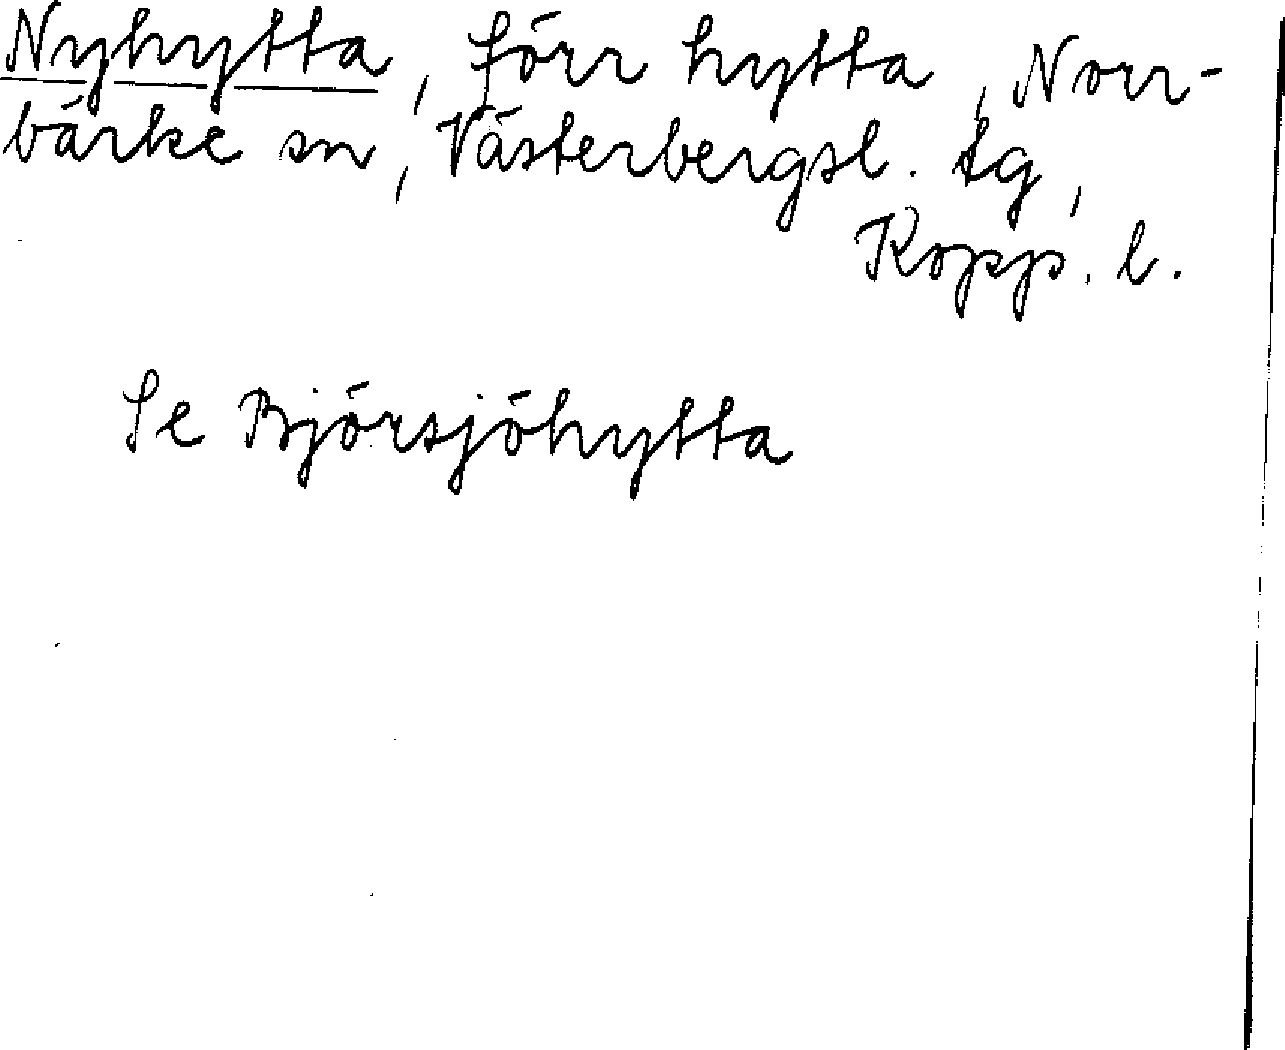 Nyhytta, förr hytta, Norr-
bärke sn, Västerbergsl. tg,
Kopp. l.
Se Björsjöhytta